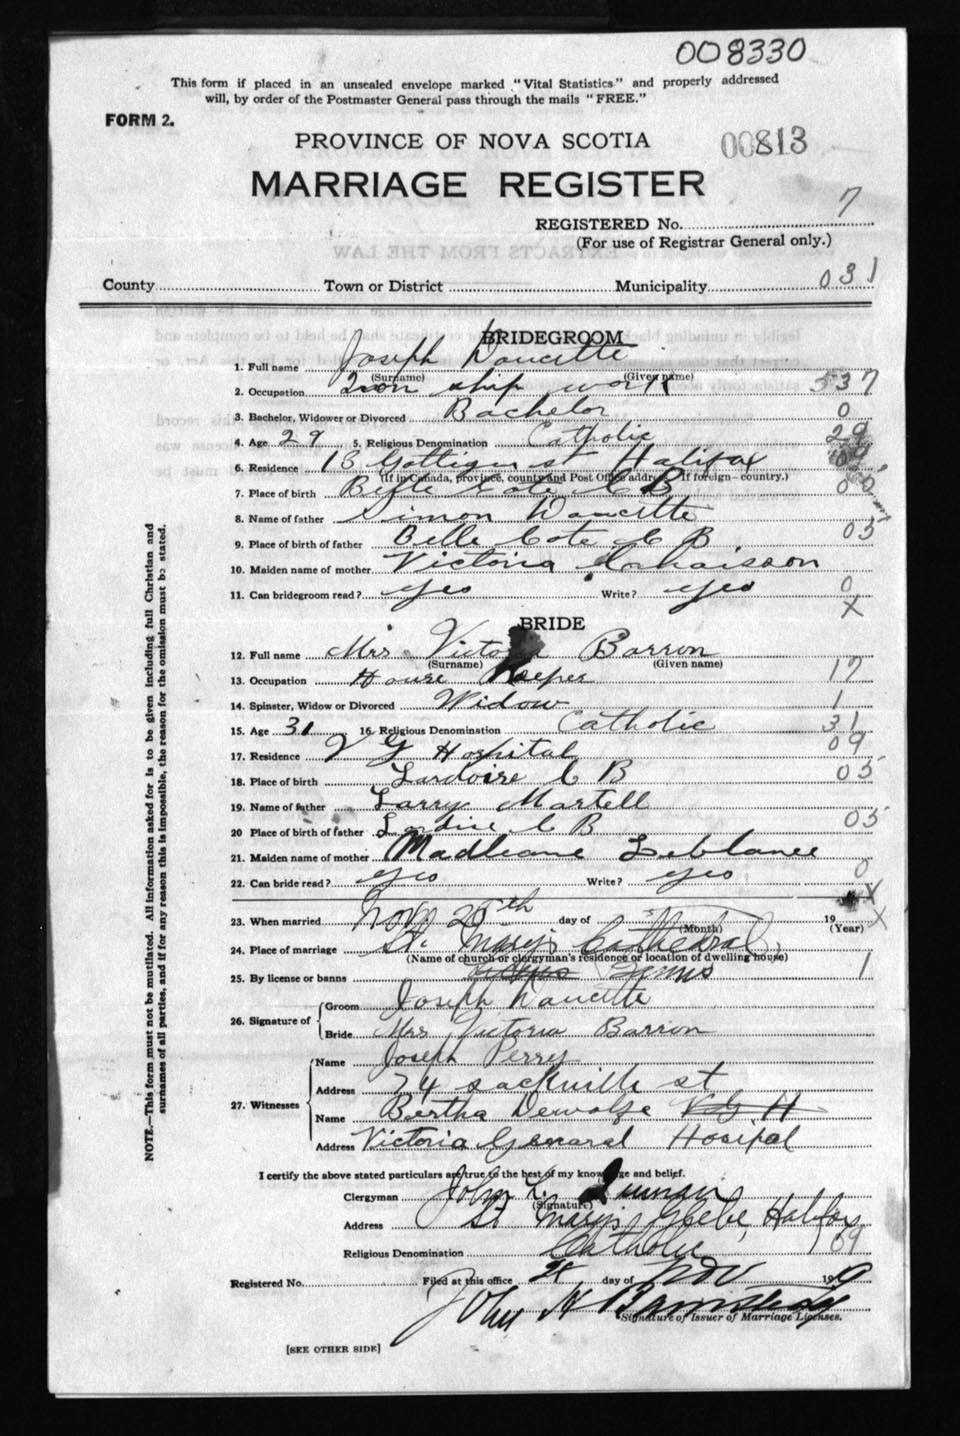 008330
This form if placed in an unsealed envelope marked "Vital Statistics" and properly addressed
will, by order of the Postmaster General pass through the mails "FREE."
FORM 2.
PROVINCE OF NOVA SCOTIA
00813
MARRIAGE REGISTER
REGISTERED No. 7
(For use of Registrar General only.)
County Town or District Municipality 031
BRIDEGROOM
1. Full name Joseph Doucette
(Surname) (Given name)
2. Occupation Iron ship work 537
3. Bachelor, Widower or Divorced Bachelor 0
4. Age 29 5. Religious Denomination Catholic 29
6. Residence 13 Gottigen st Halifax 09
(If in Canada, province, county and Post Office address. If foreign country.)
7. Place of birth Belle Cote C B
8. Name of father Simon Doucette
9. Place of birth of father Belle Cote C B 05
10. Maiden name of mother Victoria Chaisson
11. Can bridegroom read? yes Write? yes 0
X
BRIDE
12. Full name Mrs Victoria Barron
(Surname) (Given name)
13. Occupation House Keeper 17
14. Spinster, Widow or Divorced Widow 1
15. Age 31 16. Religious Denomination Catholic 31
17. Residence V G Hospital 09
18. Place of birth Lardoise C B 05
19. Name of father Larry Martell
20 Place of birth of father C B 05
21. Maiden name of mother Madleane Leblance
22. Can bride read? yes Write? yes 0
X
23. When married Nov 25th day of 19 X
(Month) (Year)
24. Place of marriage St. Mary's Cathedral,
(Name of church or clergyman's residence or location of dwelling house)
25. By license or banns 1
26. Signature of Groom Joseph Doucette
Bride Mrs Victoria Barron
27. Witnesses Name Joseph Perry
Address 74 sackville st
Name Bertha Dewolfe V G H
Address Victoria General Hosipal
I certify the above stated particulars are true to the best of my knowledge and belief.
Clergyman John L. Quinan
(Signature)
Address St Mary's Glebe, Halifax
Religious Denomination Catholic 109
Registered No. Filed at this office day of Nov 19
John H
Signature of Issuer of Marriage Licenses.
[SEE OTHER SIDE]
NOTE.—This form must not be mutilated. All information asked for is to be given including full Christian and
surnames of all parties, and if for any reason this is impossible, the reason for the omission must be stated.